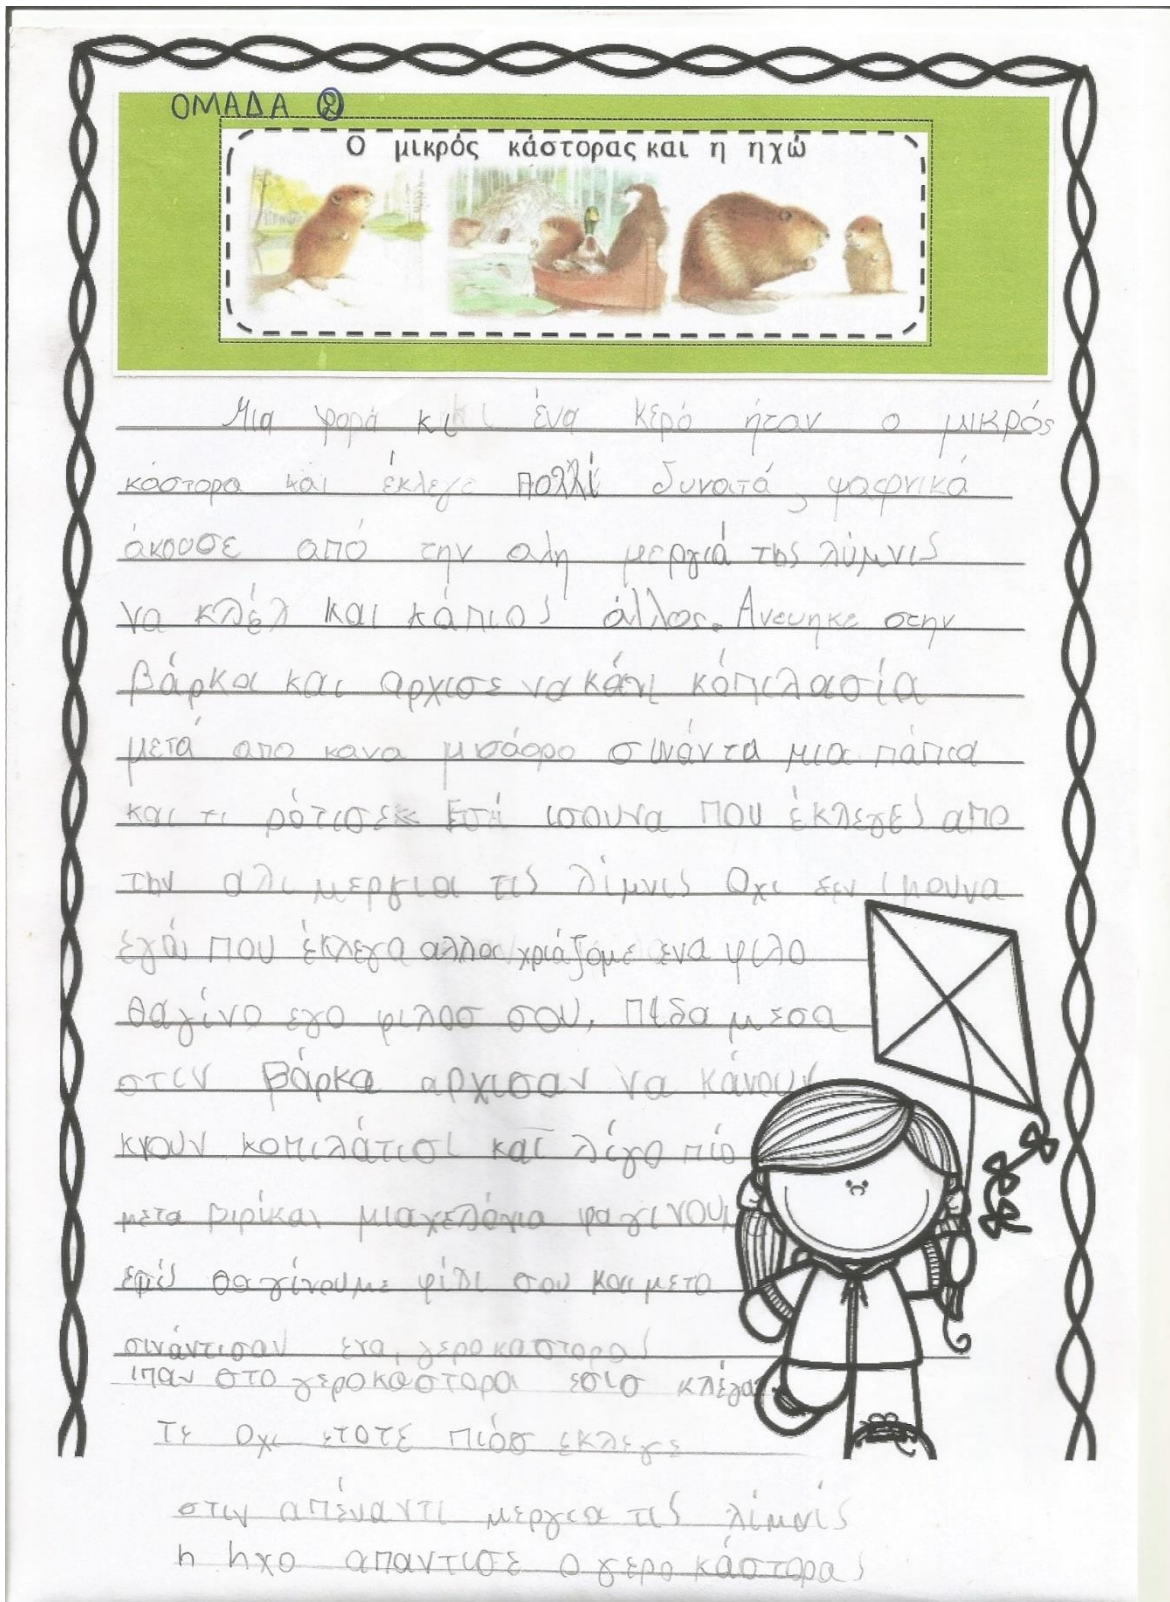 ΟΜΑΔΑ 2
Ο μικρός κάστορας και η ηχώ
Μια φορα κι ένα κερό ήταν ο μικρός
κάστορα και έκλεγε πολλί δυνατά, ψαφνικά
άκουσε από την αλη μεργιά της λύμνις
να κλέι και κάπιος άλλος. Ανευηκε στην
βάρκα και αρχισε να κάνι κόπιλασία
μετά απο κανα μισάορο σινάντα μια πάπια
και τι ρότισε Εσή ισουνα που έκλεγες απο
την αλι μεργια τις λίμνις Οχι δεν ίμουνα
έγω που έκλεγα αλλος χριάζομε ενα φιλο
θα γίνο εγο φιλοσ σου. Πίδα μεσα
στιν βάρκα αρχισαν να κάνουν
κνουν κοπιλάτισι και λίγο πίο
μετα βιρίκαν μια χελόνια
εμίς θα γίνουμε φίλι σου και μετα
σινάντισαν ενα, γεροκαστορας
ιπαν στο γεροκαστορα εσισ κλέγα
τε οχι ετοτε πιόσ εκλεγε
στιν απέναντι μεργια τις λίμνις
η ηχο απαντισε ο γερο κάστορας